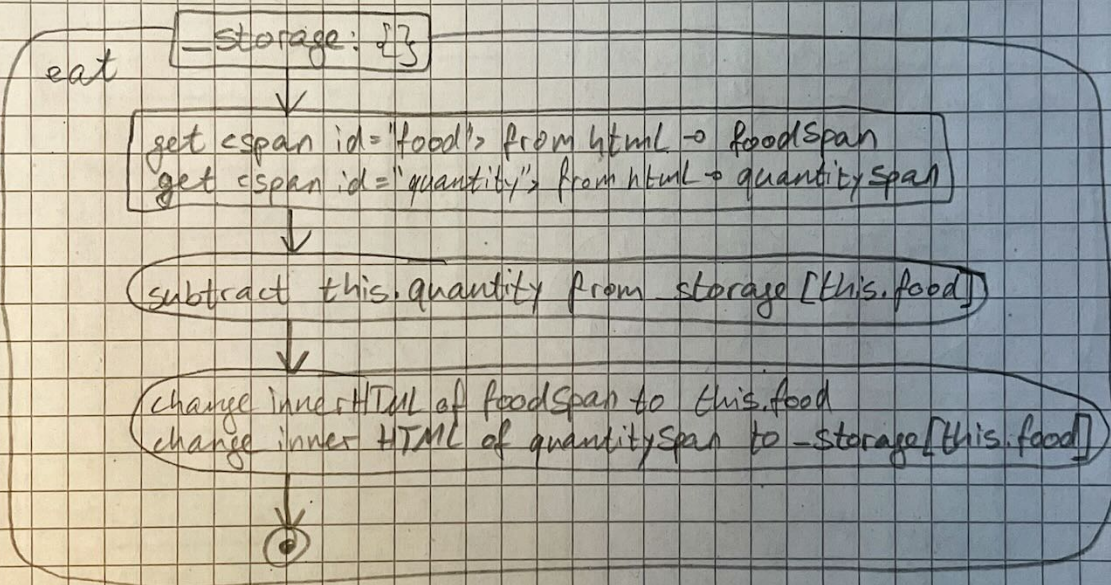 _storage: {}
eat
get <span id="food"> from html → foodSpan
get <span id="quantity"> from html → quantitySpan
subtract this.quantity from _storage[this.food]
change innerHTML of foodSpan to this.food
change inner HTML of quantitySpan to _storage[this.food]